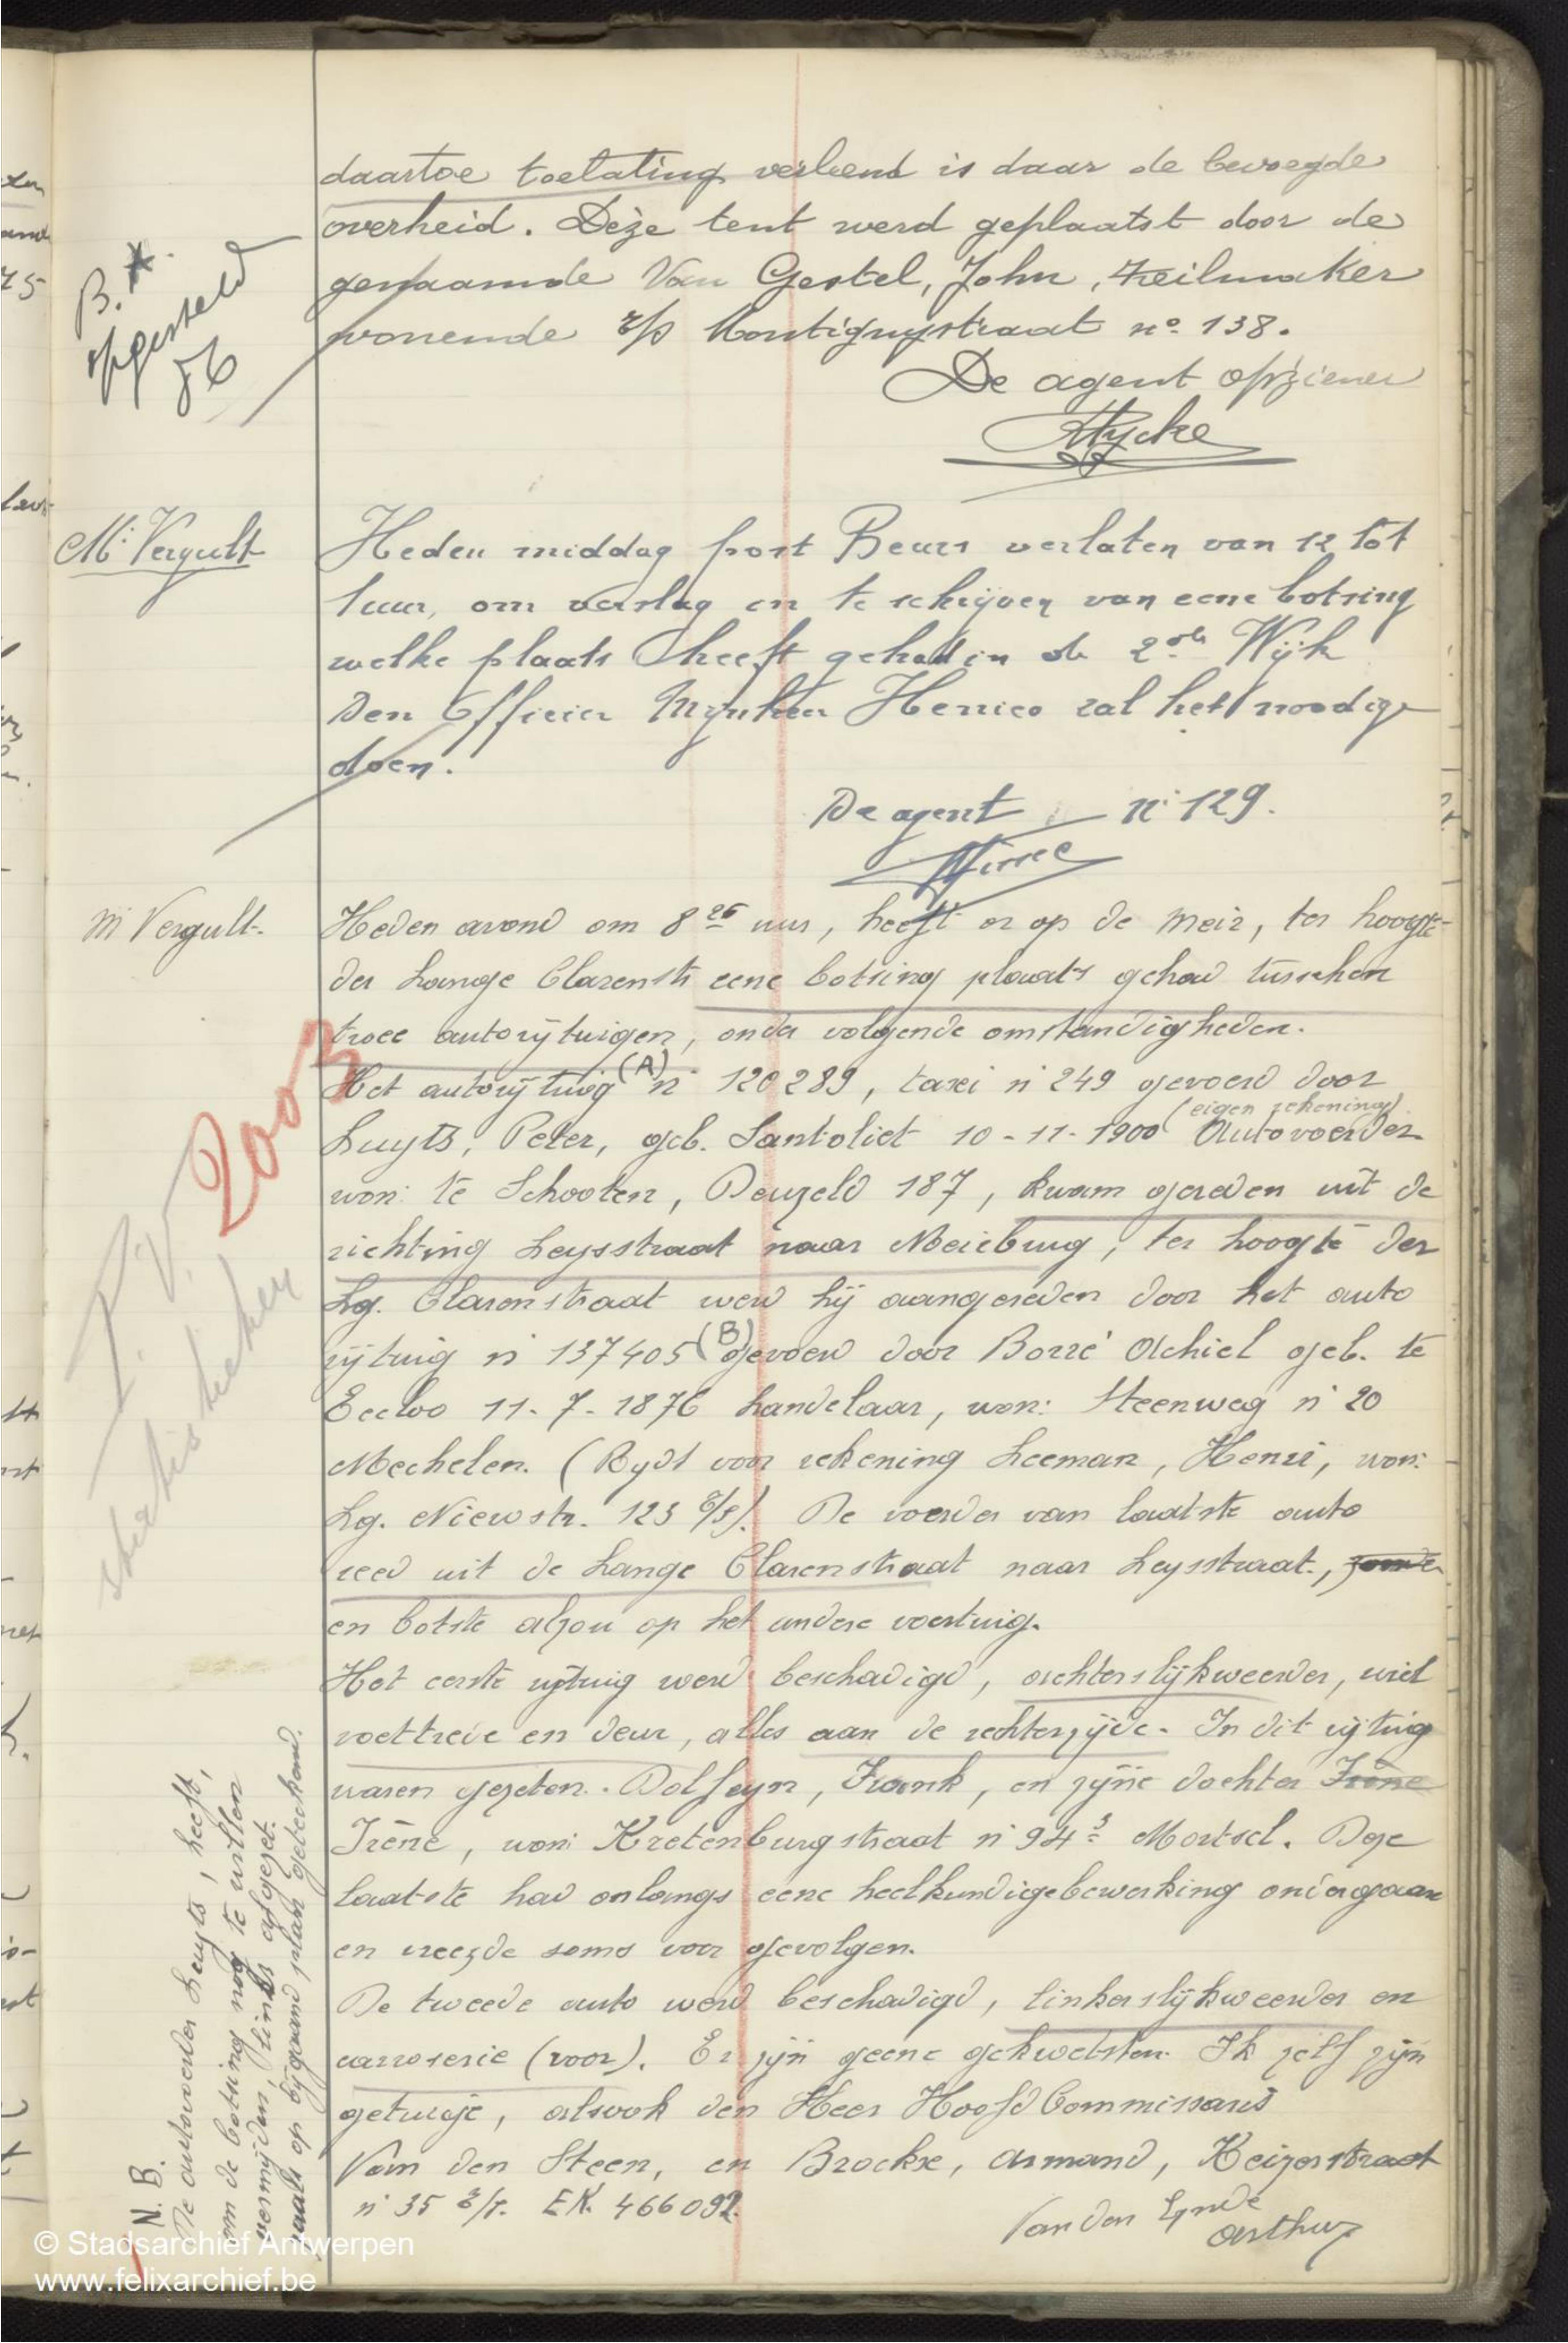 daartoe toelating verleend is daar de bevoegde
overheid. Deze tent werd geplaatst door de
genaamde Van Gestel, John, zeilmaker
wonende z/s Montignystraat no. 138.
De agent opziener
B.
opgesteld
Mr. Vergult
Heden middag post Beurs verlaten van 12 tot
1 uur, om verslag in te schrijven van eene botsing
welke plaats heeft gehad in de 2de Wijk
Den Officier Mijnheer Henrico zal het noodige
doen.
De agent no 129.
Mr Vergult.
Heden avond om 8 25 uur, heeft er op de Meir, ter hoogte
der Lange Clarenstr eene botsing plaats gehad tusschen
twee autorijtuigen, onder volgende omstandigheden.
Het autorijtuig (A) n° 120289, taxi n° 249 gevoerd door
Luyts, Peter, geb. Santvliet 10-11-1900 (eigen rekening) Autovoerder
won: te Schooten, Deuzeld 187, kwam gereden uit de
richting Leysstraat naar Meirbrug, ter hoogte der
Lg. Clarenstraat werd hij aangereden door het auto
rijtuig n° 137405 (B) gevoerd door Borré Achiel geb. te
Eecloo 11-7-1876 handelaar, won: Steenweg n° 20
Mechelen. (Rijdt voor rekening Leeman, Henri, won:
Lg. Nieuwstr. 123 z/s). De voerder van laatste auto
reed uit de Lange Clarenstraat naar Leysstraat, zonder
en botste alzou op het andere voertuig.
Het eerste rijtuig werd beschadigd, achterslijkweerder, wiel
voettrede en deur, alles aan de rechterzijde. In dit rijtuig
waren gezeten. Dolfeyn, Frank, en zijne dochter Irène
Irène, won: Kretenburgstraat n° 94 3 Mortsel. Deze
laatste had onlangs eene heelkundige bewerking ondergaan
en vreesde soms voor gevolgen.
De tweede auto werd beschadigd, linkerslijkweerder en
carroserie (voor). Er zijn geene gekwetsten. Ik zelf zijn
getuige, alsook den Heer Hoofd Commissaris
Van den Steen, en Brockx, Armand, Keizerstraat
n° 35 z/s. EK. 466092.
Van den Eynde
Arthur
2003
P.V.
N.B.
De autovoerder Luyts, heeft,
om de botsing nog te willen
vermijden, links afgezet.
zaals op bijgaand plan geteekend.
© Stadsarchief Antwerpen
www.felixarchief.be